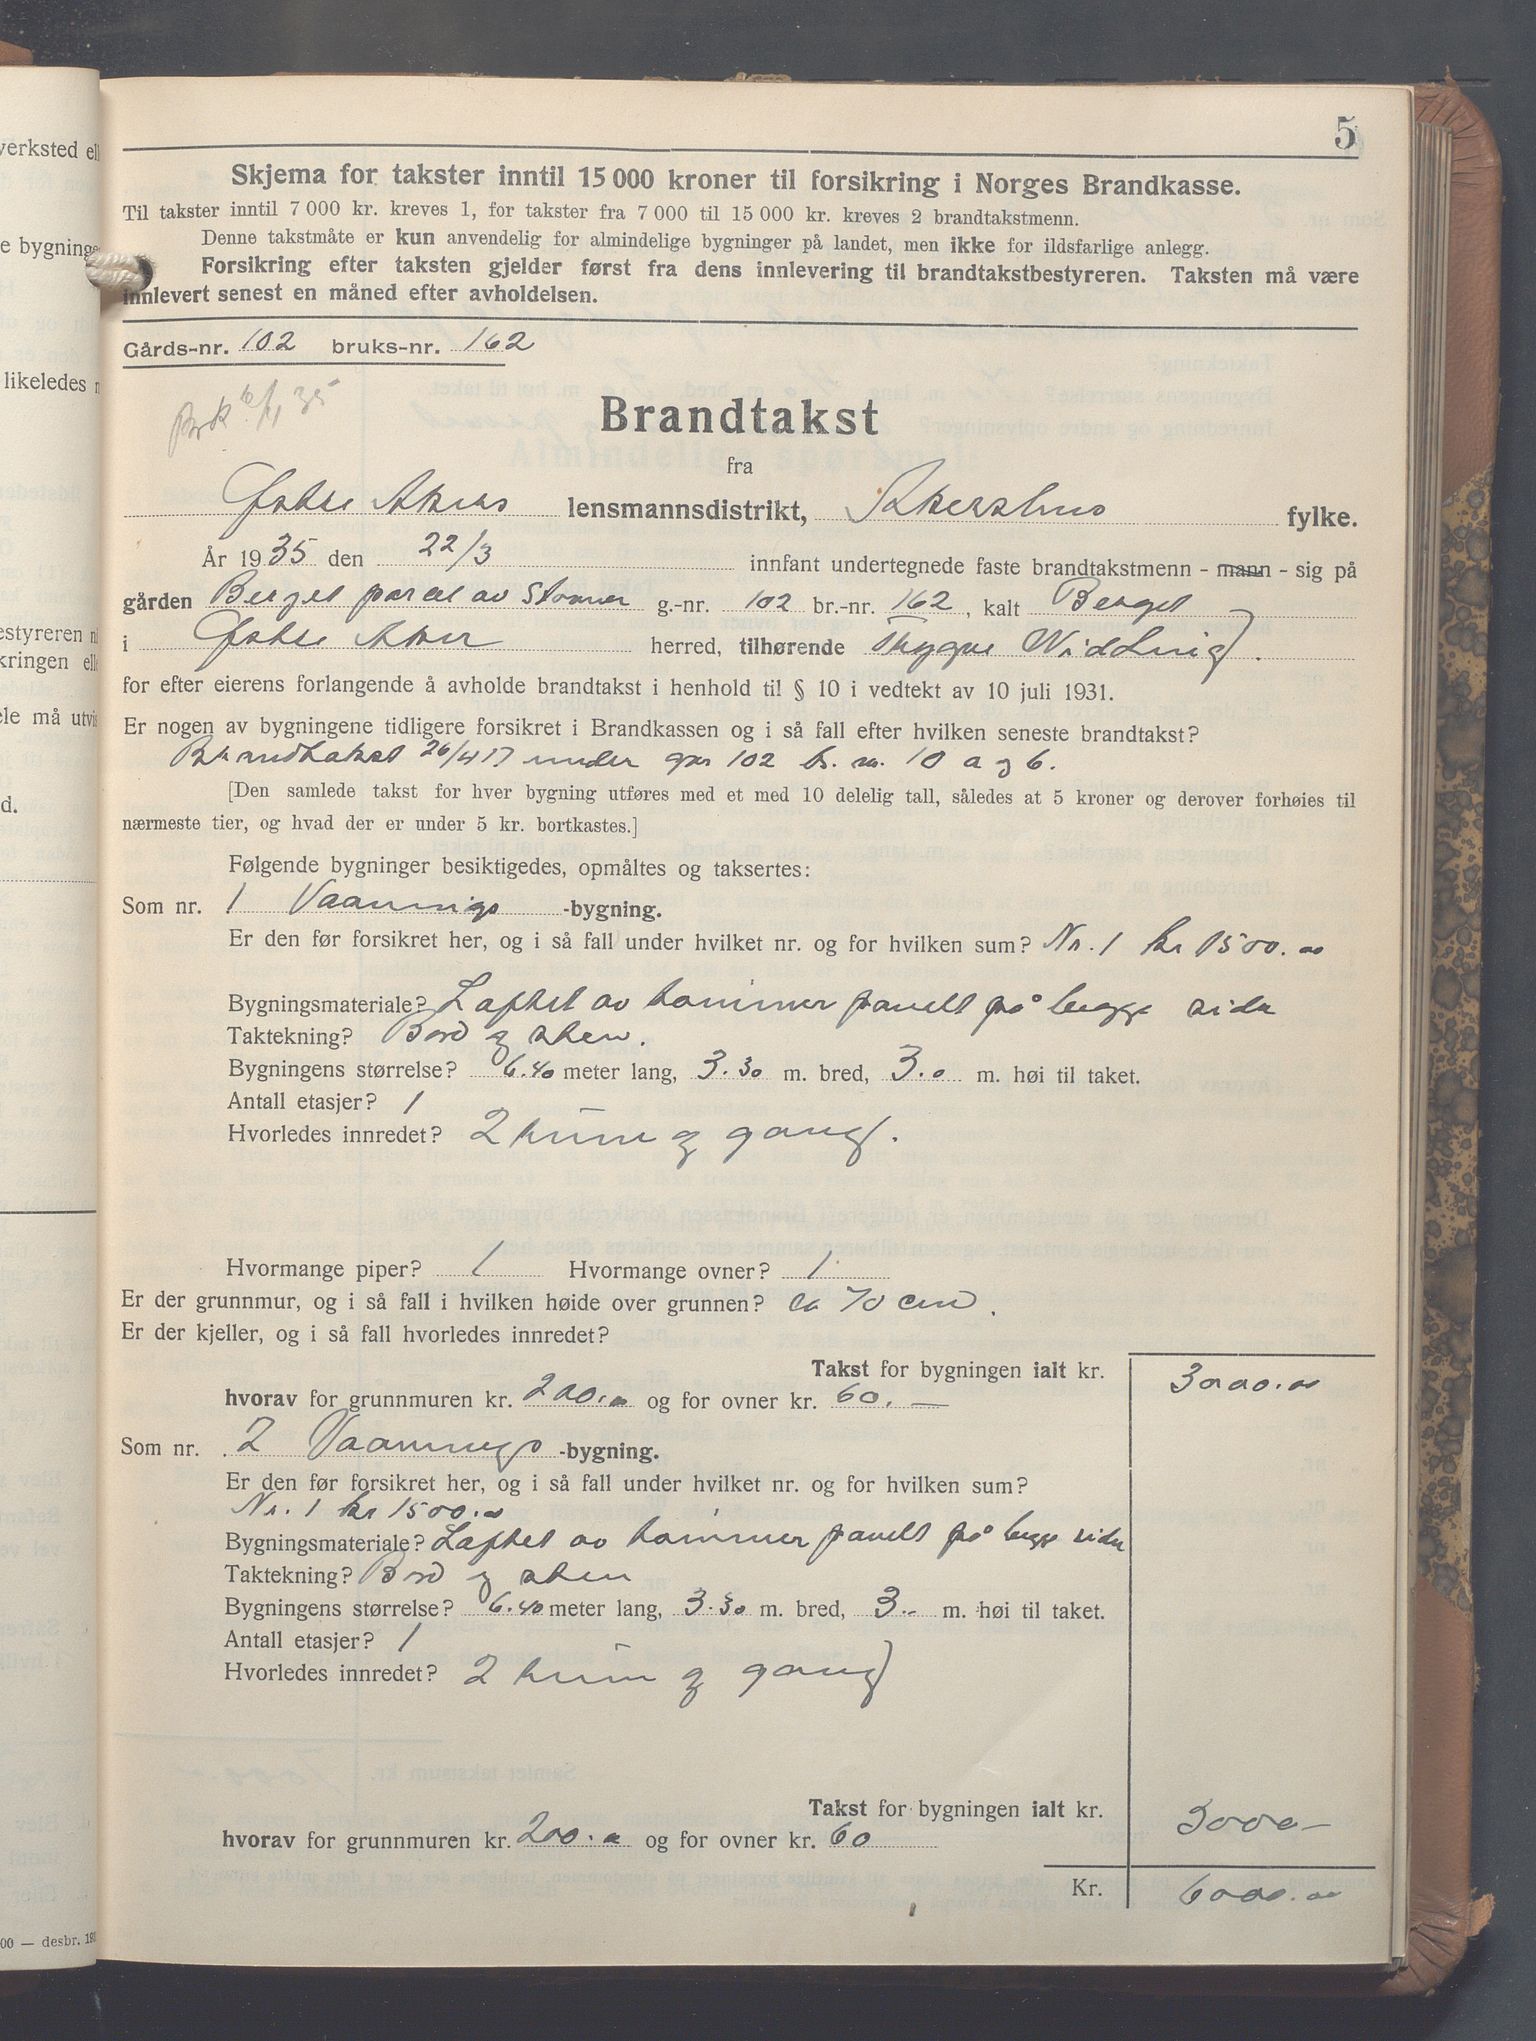 5
Skjema for takster inntil 15 000 kroner til forsikring i Norges Brandkasse.
Til takster inntil 7 000 kr. kreves 1, for takster fra 7 000 til 15 000 kr. kreves 2 brandtakstmenn.
Denne takstmåte er kun anvendelig for almindelige bygninger på landet, men ikke for ildsfarlige anlegg.
Forsikring efter taksten gjelder først fra dens innlevering til brandtakstbestyreren. Taksten må være
innlevert senest en måned efter avholdelsen.
Gårds-nr. 102 bruks-nr. 162
Brandtakst
fra
Østre Akers lensmannsdistrikt, Akershus fylke.
År 1935 den 22/3 innfant undertegnede faste brandtakstmenn - mann - sig på
gården Berget parcel av Stovner g.-nr. 102 br.-nr. 162, kalt Berget
i Østre Aker herred, tilhørende Trygve
for efter eierens forlangende å avholde brandtakst i henhold til § 10 i vedtekt av 10 juli 1931.
Er nogen av bygningene tidligere forsikret i Brandkassen og i så fall efter hvilken seneste brandtakst?
Brandtakst 26/4 17 under gnr 102 br. nr. 10 a og b.
[Den samlede takst for hver bygning utføres med et med 10 delelig tall, således at 5 kroner og derover forhøies til
nærmeste tier, og hvad der er under 5 kr. bortkastes.]
Følgende bygninger besiktigedes, opmåltes og taksertes:
Som nr. 1 Vaanings -bygning.
Er den før forsikret her, og i så fall under hvilket nr. og for hvilken sum? Nr. 1 kr 1500.00
Bygningsmateriale? Laftet av tømmer panelt på begge sider
Taktekning? Bord og sten.
Bygningens størrelse? 6.40 meter lang, 3.30 m. bred, 3.0 m. høi til taket.
Antall etasjer? 1
Hvorledes innredet? 2 rum og gang.
Hvormange piper? 1 Hvormange ovner? 1
Er der grunnmur, og i så fall i hvilken høide over grunnen? ca 70 cm.
Er der kjeller, og i så fall hvorledes innredet?
Takst for bygningen ialt kr. 3000.00
hvorav for grunnmuren kr. 200.00 og for ovner kr. 60.—
Som nr. 2 Vaanings -bygning.
Er den før forsikret her, og i så fall under hvilket nr. og for hvilken sum?
Nr. 1 kr 1500.00
Bygningsmateriale? Laftet av tømmer panelt på begge sider
Taktekning? Bord og sten
Bygningens størrelse? 6.40 meter lang, 3.30 m. bred, 3.- m. høi til taket.
Antall etasjer? 1
Hvorledes innredet? 2 rum og gang
Takst for bygningen ialt kr. 3000-
hvorav for grunnmuren kr. 200.00 og for ovner kr. 60
Kr. 6000.00